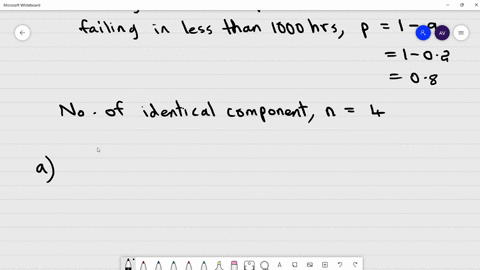 Microsoft Whiteboard
failing in less than 1000 hrs, p = 1 - q
= 1 - 0.2
= 0.8
No. of identical component, n = 4
a)
AV